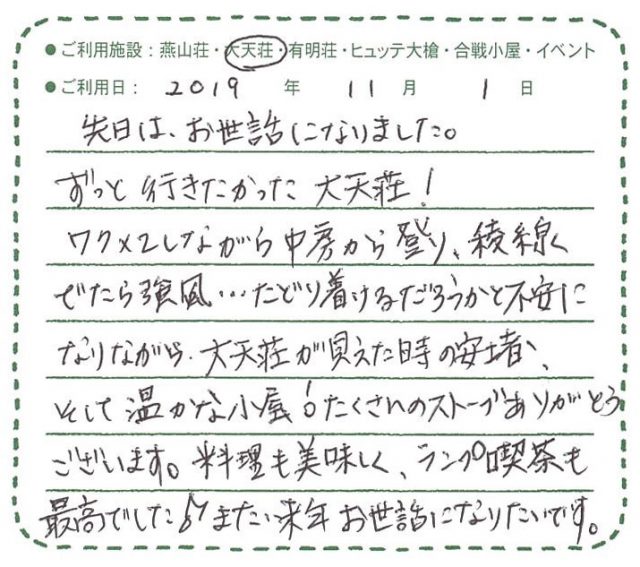 ● ご利用施設：燕山荘・大天荘・有明荘・ヒュッテ大槍・合戦小屋・イベント
● ご利用日： 2019 年 11 月 1 日
先日は、お世話になりました。
ずっと行きたかった大天荘！
ワクメクしながら中房から登り、綾線く
でたら強風…たどり着けるだろうかと不安に
なりながら、大天荘が見えた時の安堵、
そして温かな小屋！たくさんのストーブありがとう
ございます。料理も美味しく、ランプ喫茶も
最高でした♪またい来年お世話になりたいです。